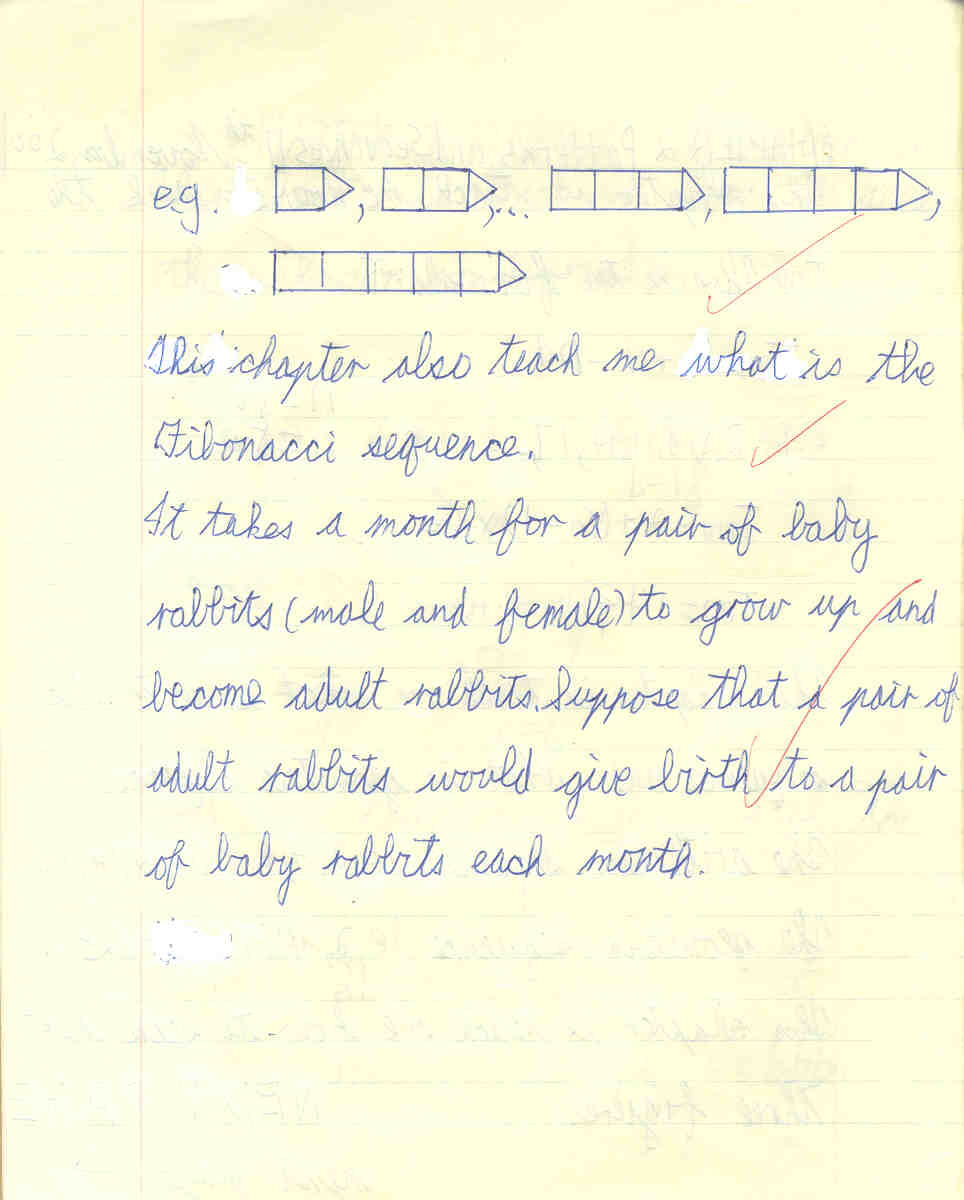 e.g. , ,... , ,
This chapter also teach me what is the
Fibonacci sequence.
It takes a month for a pair of baby
rabbits (male and female) to grow up and
become adult rabbits. Suppose that a pair of
adult rabbits would give birth to a pair
of baby rabbits each month.